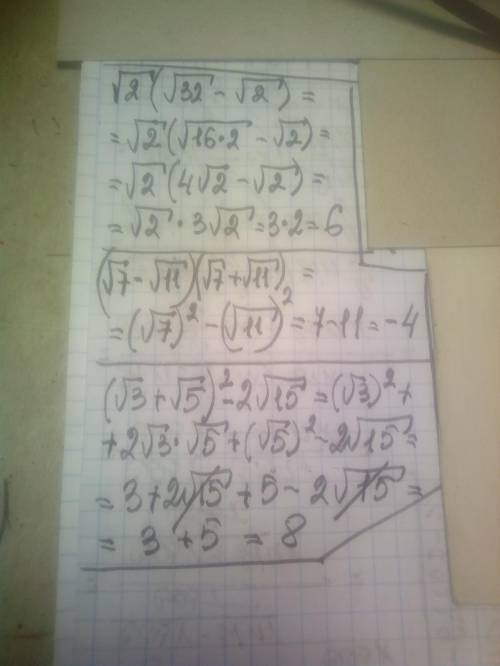 √2(√32 - √2) =
= √2(√16·2 - √2) =
= √2(4√2 - √2) =
= √2 · 3√2 = 3·2 = 6
(√7 - √11)(√7 + √11) =
= (√7)² - (√11)² = 7 - 11 = -4
(√3 + √5)² - 2√15 = (√3)² +
+ 2√3 · √5 + (√5)² - 2√15 =
= 3 + 2√15 + 5 - 2√15 =
= 3 + 5 = 8